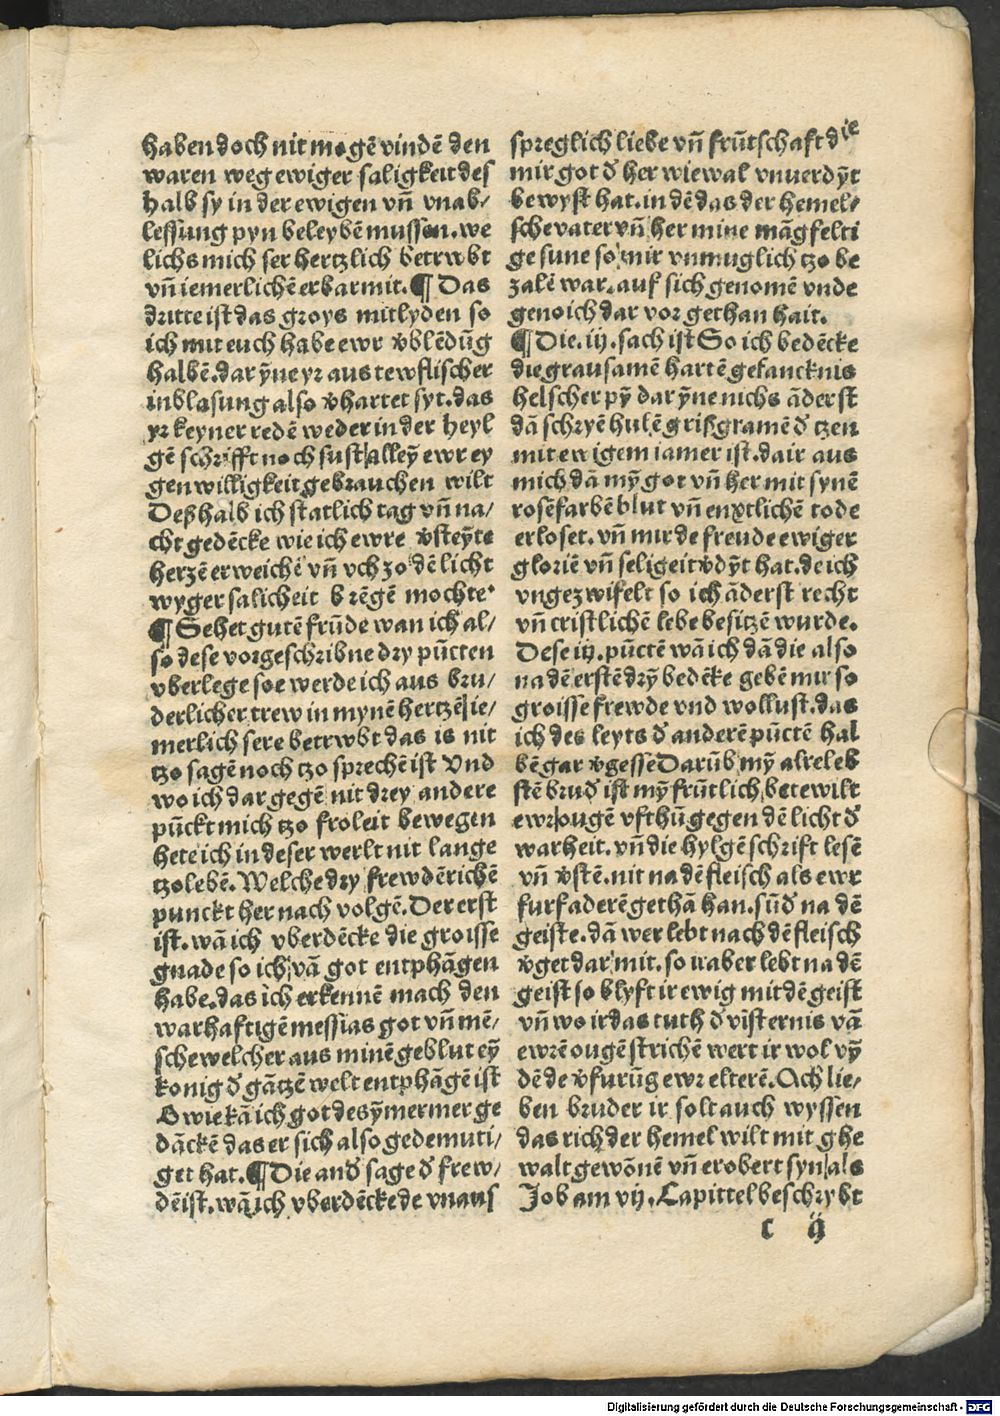 haben doch nit mogē vindē den
waren weg ewiger saligkeit des
halb sy in der ewigen vn̄ vnab/
lessung pyn beleybē mussen. we
lichs mich ser hertzlich betrwbt
vn̄ iemerlichē erbarmit. ¶ Das
dritte ist das groys mitlyden so
ich mit euch habe ewr v̄blēdūg
halbē. dar ȳne yr aus tewflischer
inblasung also v̄hartet syt. das
yr keyner redē weder in der heyl
gē schrifft noch sust alleȳ ewr ey
gen willigkeit gebrauchen wilt
Deßhalb ich statlich tag vn̄ na/
cht gedēcke wie ich ewre v̄steȳte
herzē erweichē vn̄ vch zo dē licht
wyger salicheit brēgē mochte.
¶ Sehet gutē frūde wan ich al/
so dese vorgeschribne dry pūcten
vberlege soe werde ich aus bru/
derlicher trew in mynē hertzē ie/
merlich sere betrwbt das is nit
tzo sagē noch tzo sprechē ist Vnd
wo ich dar gegē nit drey andere
pūckt mich tzo froleit bewegen
hete ich in deser werlt nit lange
tzo lebē. Welche dry frewdērichē
punckt her nach volgē. Der erst
ist. wā ich vberdēcke die groisse
gnade so ich vā got entphāgen
habe. das ich erkennē mach den
warhaftigē messias got vn̄ mē/
sche welcher aus minē geblut eȳ
konig d̄ gātzē welt entphāgē ist
O wie kā ich got des ȳmermer ge
dāckē das er sich also gedemuti/
get hat. ¶ Die and̄ sage d̄ frew/
dē ist. wā ich vberdēcke de vnaus
spreglich liebe vn̄ frūtschaft die
mir got d̄ her wiewal vnuerdȳt
bewyst hat. in dē das der hemel/
sche vater vn̄ her mine māgfelti
ge sune so mir vnmuglich tzo be
zalē war. auf sich genomē vnde
genoich dar vor gethan hait.
¶ Die. iij. sach ist So ich bedēcke
die grausamē hartē gefancknis
helscher pȳ dar ȳne nichs āderst
dā schryē hulē grißgramē d̄ tzen
mit ewigem iamer ist. dair aus
mich dā mȳ got vn̄ her mit synē
rosēfarbē blut vn̄ enxtlichē tode
erloset. vn̄ mir de freude ewiger
gloriē vn̄ seligeit v̄dȳt hat. de ich
vngezwifelt so ich āderst recht
vn̄ cristlichē lebē besitzē wurde.
Dese iij. pūctē wā ich dā die also
na dē erstē drȳ bedēke gebē mir so
groisse frewde vnd wollust. das
ich des leyts d̄ anderē pūctē hal
bē gar v̄gesse Darūb mȳ alreleb
stē brud̄ ist mȳ frūtlich bete wilt
ewr ougē vfthū gegen dē licht d̄
warheit. vn̄ die hylgē schrift lesē
vn̄ v̄stē. nit na dē fleisch als ewr
furfaderē gethā han. sūd̄ na dē
geiste. dā wer lebt nach dē fleisch
v̄get dar mit. so ir aber lebt na dē
geist so blyft ir ewig mit dē geist
vn̄ wo ir das tuth d̄ visternis vā
ewrē ougē strichē wert ir wol vȳ
dē de v̄furūg ewr elterē. Ach lie/
ben bruder ir solt auch wyssen
das rich der hemel wilt mit ghe
walt gewōnē vn̄ erobert syn als
Job am vij. Capittel beschrybt
c ij
Digitalisierung gefördert durch die Deutsche Forschungsgemeinschaft - DFG